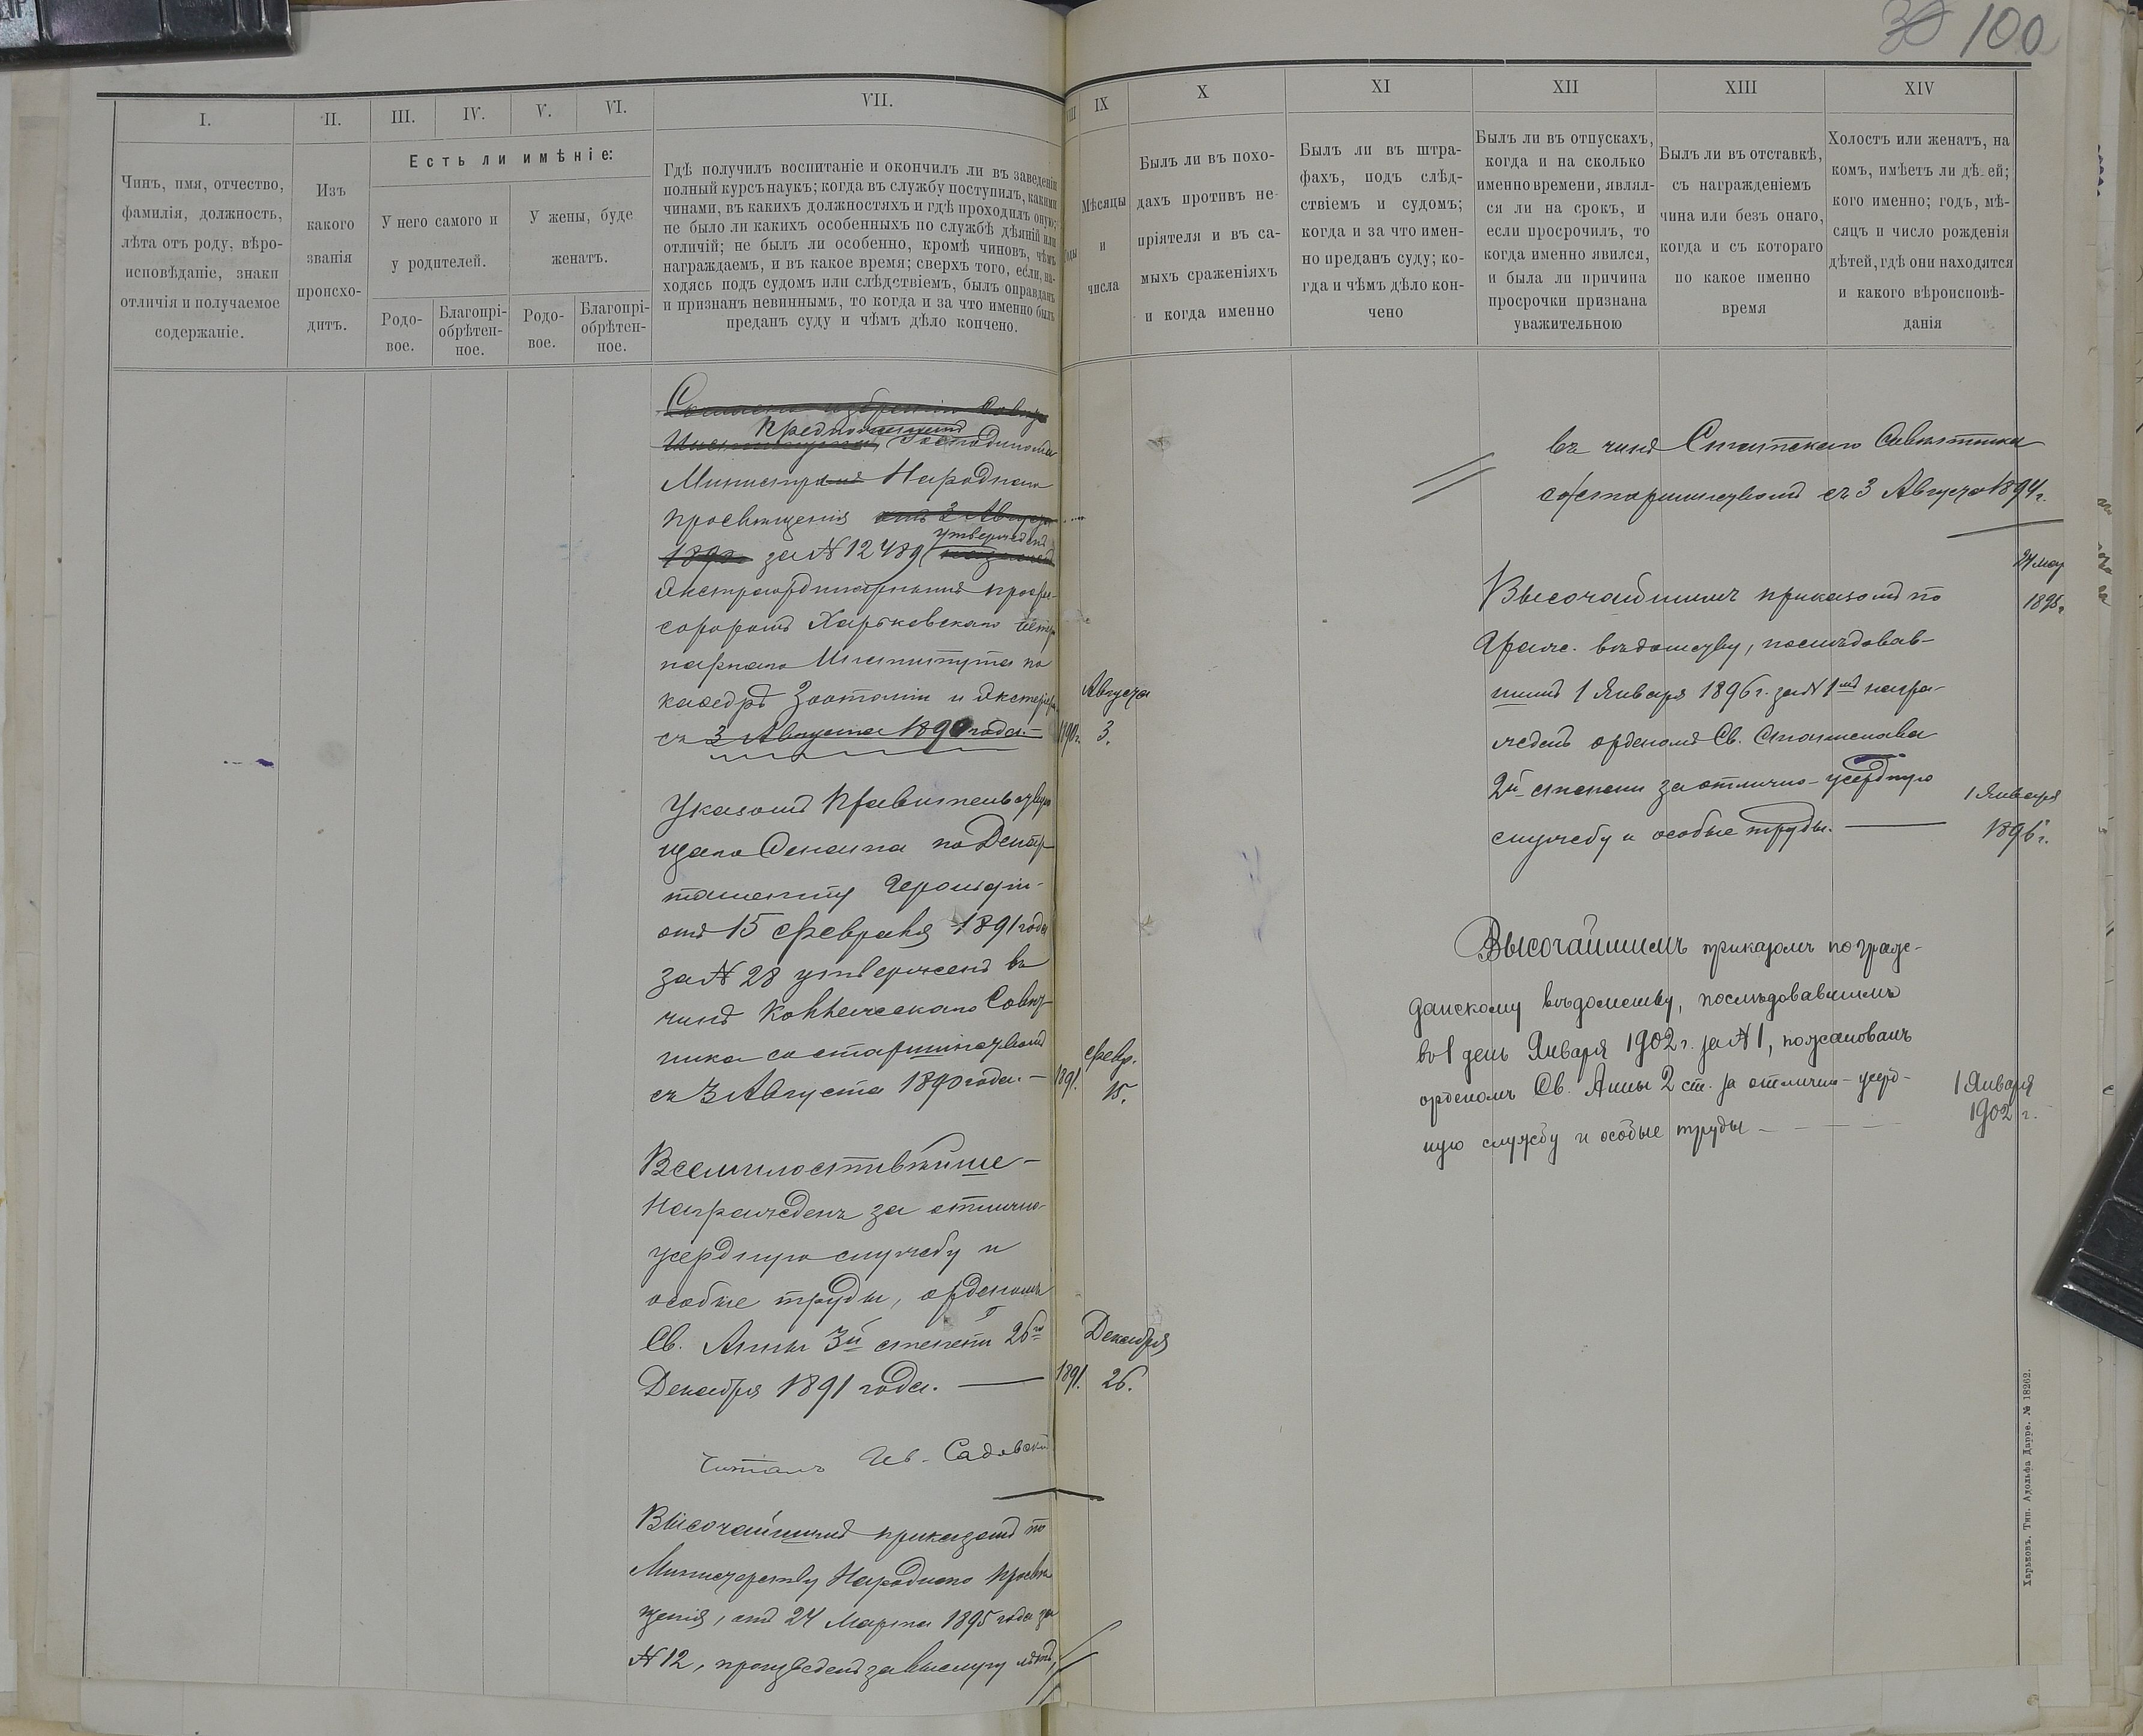 30 100
I.
II.
III.
IV.
V.
VI.
VII.
VIII
IX
X
XI
XII
XIII
XIV
Чинъ, имя, отчество,
фамилія, должность,
лѣта отъ роду, вѣро-
исповѣданіе, знаки
отличія и получаемое
содержаніе.
Изъ
какого
званія
происхо-
дитъ.
Есть ли имѣніе:
У него самого и
у родителей.
У жены, буде
женатъ.
Родо-
вое.
Благопрі-
обрѣтен-
ное.
Родо-
вое.
Благопрі-
обрѣтен-
ное.
Гдѣ получилъ воспитаніе и окончилъ ли въ заведеніи
полный курсъ наукъ; когда въ службу поступилъ, какими
чинами, въ какихъ должностяхъ и гдѣ проходилъ оную;
не было ли какихъ особенныхъ по службѣ дѣяній или
отличій; не былъ ли особенно, кромѣ чиновъ, чѣмъ
награждаемъ, и въ какое время; сверхъ того, если, на-
ходясь подъ судомъ или слѣдствіемъ, былъ оправданъ
и признанъ невиннымъ, то когда и за что именно былъ
преданъ суду и чѣмъ дѣло кончено.
Годы
Мѣсяцы
и
числа
Былъ ли въ похо-
дахъ противъ не-
пріятеля и въ са-
мыхъ сраженіяхъ
и когда именно
Былъ ли въ штра-
фахъ, подъ слѣд-
ствіемъ и судомъ;
когда и за что имен-
но преданъ суду; ко-
гда и чѣмъ дѣло кон-
чено
Былъ ли въ отпускахъ,
когда и на сколько
именно времени, являл-
ся ли на срокъ, и
если просрочилъ, то
когда именно явился,
и была ли причина
просрочки признана
уважительною
Былъ ли въ отставкѣ,
съ награжденіемъ
чина или безъ онаго,
когда и съ котораго
по какое именно
время
Холостъ или женатъ, на
комъ, имѣетъ ли дѣ-ей;
кого именно; годъ, мѣ-
сяцъ и число рожденія
дѣтей, гдѣ они находятся
и какого вѣроисповѣ-
данія
Согласно избранію Совѣта
Института Господиномъ
Министромъ Народнаго
Просвѣщенія отъ 3 Августа
утвержденъ
1890 за № 12489
Экстраординарнымъ профес-
соромъ Харьковскаго Ветери-
нарнаго Института по
каѳедрѣ Зоотоміи и Экстерьера
съ 3 Августа 1890 года.
Августа
1890 г. 3.
Указомъ Правительствую
щаго Сената по Депар-
таменту Герольдіи
отъ 15 Февраля 1891 года
за № 28 утвержденъ въ
чинѣ Коллежскаго Совѣт-
ника со старшинствомъ
съ 3 Августа 1890 года. —
Февр.
1891. 15.
Всемилостивѣйше
Награжденъ за отлично-
усердную службу и
особые труды, орденомъ
Св. Анны 3й степени 26го
Декабря 1891 года. —
Декабря
1891. 26.
Читалъ Ив. Садовскій
Высочайшимъ приказомъ по
Министерству Народнаго Просвѣ
щенія, отъ 24 Марта 1895 года за
№ 12, произведенъ за выслугу лѣтъ,
въ чинъ Статскаго Совѣтника
со старшинствомъ съ 3 Августа 1894 г.
24 мар
1895 г.
Высочайшимъ приказомъ по
Гражд. вѣдомству, послѣдовав-
шимъ 1 Января 1896 г. за № 1мъ награ-
жденъ орденомъ Св. Станислава
2й степени за отлично-усердную
службу и особые труды. —
1 Января
1896 г.
Высочайшимъ приказомъ по граж-
данскому вѣдомству, послѣдовавшимъ
во 1 день Января 1902 г. за № 1, пожалованъ
орденомъ Св. Анны 2 ст. за отлично-усерд-
ную службу и особые труды
1 Января
1902 г.
Харьковъ. Тип. Адольфа Дарре. № 18262.